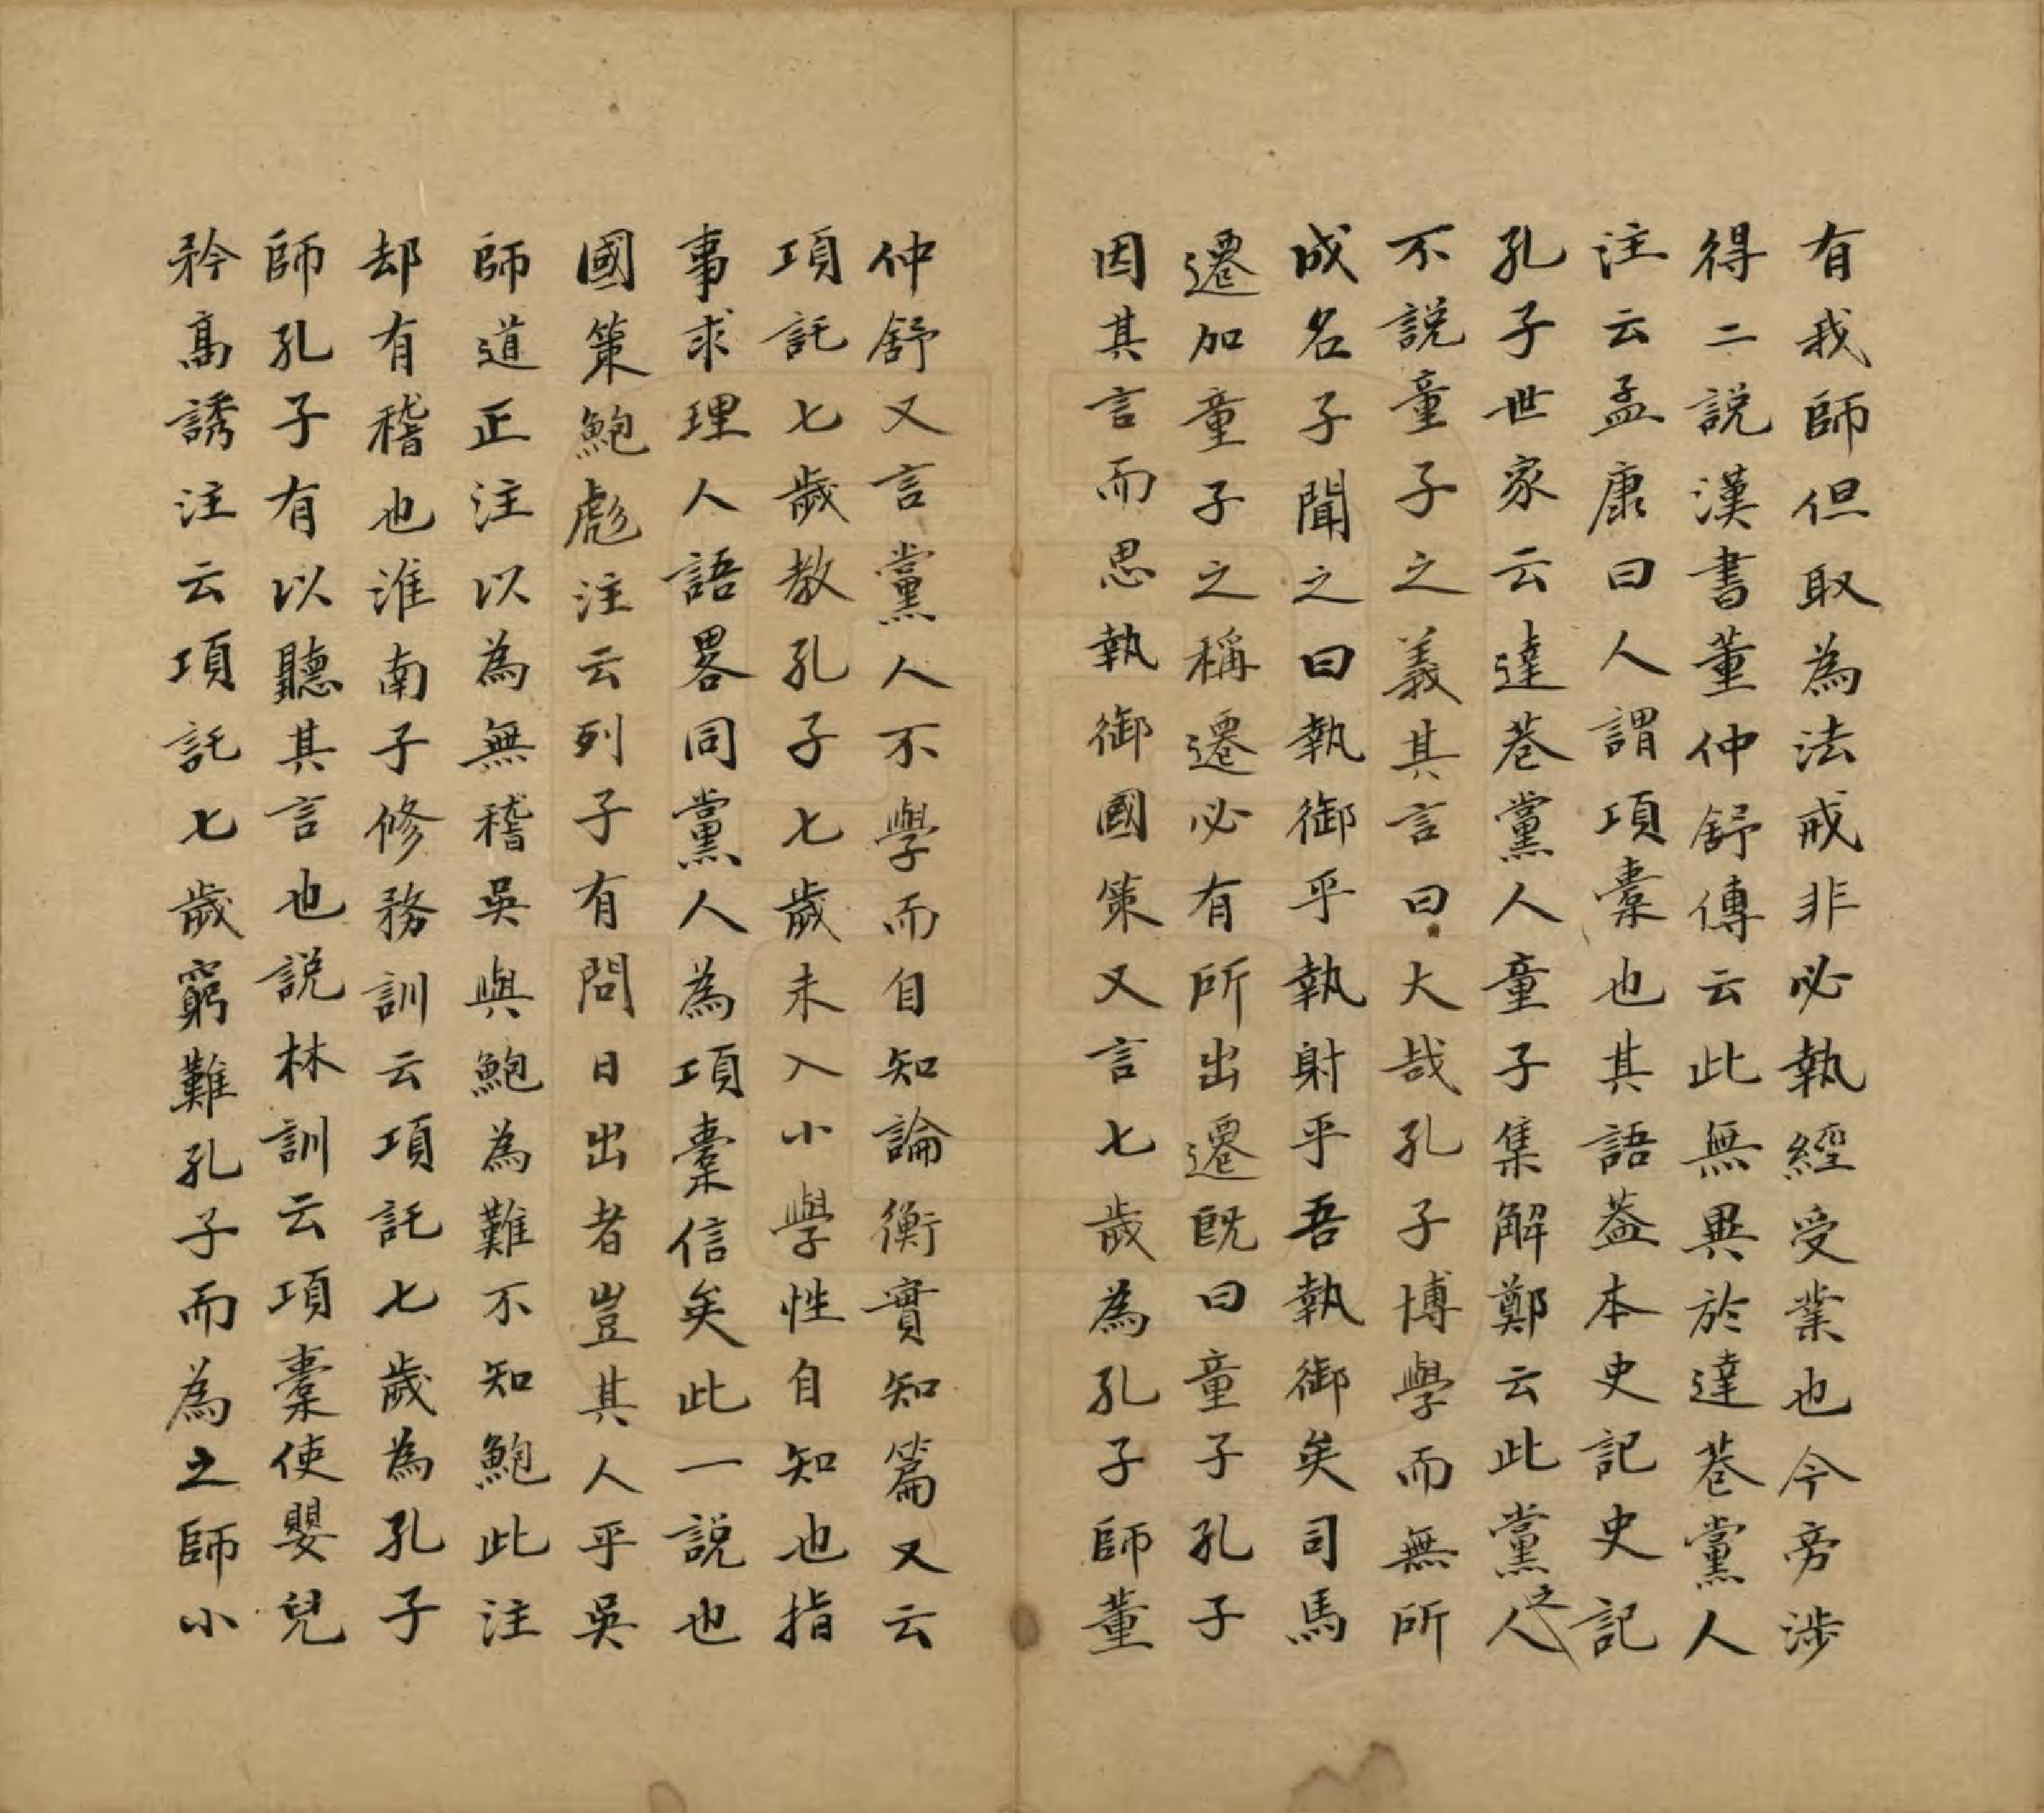 有我師但取為法戒非必執經受業也今旁涉
得二説漢書董仲舒傳云此無異於達巷黨人
注云孟康曰人謂項橐也其語葢本史記史記
孔子世家云達巷黨人童子集解鄭云此黨人之
不説童子之義其言曰大哉孔子博學而無所
成名子聞之曰執御乎執射乎吾執御矣司馬
遷加童子之稱遷必有所出遷既曰童子孔子
因其言而思執御國策又言七歲為孔子師董
仲舒又言黨人不學而自知論衡實知篇又云
項託七歲教孔子七歲未入小學性自知也指
事求理人語畧同黨人為項橐信矣此一説也
國策鮑彪注云列子有問日出者豈其人乎吳
師道正注以為無稽吳與鮑為難不知鮑此注
却有稽也淮南子修務訓云項託七歲為孔子
師孔子有以聽其言也説林訓云項橐使嬰兒
矜高誘注云項託七歲窮難孔子而為之師小